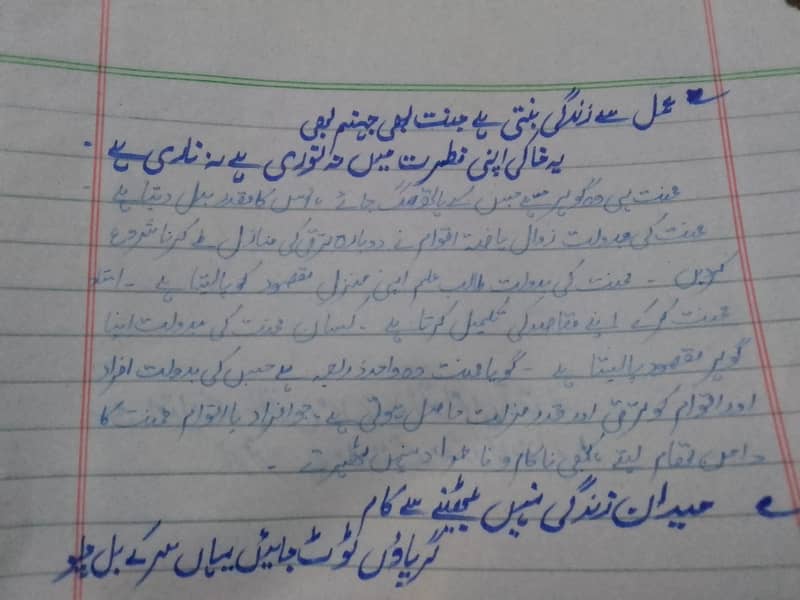 عمل سے زندگی بنتی ہے جنت بھی جہنم بھی
یہ خاکی اپنی فطرت میں نہ نوری ہے نہ ناری ہے ۔
محنت ہی وہ گوہر ہے جس کے ہاتھ لگ جائے ، اس کا مقدر بدل دیتا ہے ۔
محنت کی بدولت زوال یافتہ اقوام نے دوبارہ ترقی کی منازل طے کرنا شروع
کردیں ۔ محنت کی بدولت طالب علم اپنی منزل مقصود کو پالیتا ہے ۔ استاد
محنت کرکے اپنے مقاصد کی تکمیل کرتا ہے ۔ کسان محنت کی بدولت اپنا
گوہر مقصود پالیتا ہے ۔ گویا محنت وہ واحد ذریعہ ہے جس کی بدولت افراد
اور اقوام کو ترقی اور قدر و منزلت حاصل ہوتی ہے ۔ جو افراد یا اقوام محنت کا
دامن تھام لیتے ، کبھی ناکام و نامراد نہیں ٹھہرتے ۔
میدان زندگی نہیں بیٹھنے سے کام
گر پاؤں ٹوٹ جائیں یہاں سر کے بل چلو